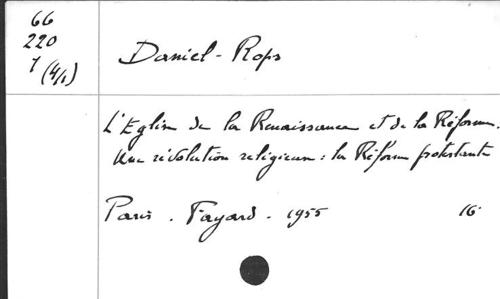 66
220
7 (4/1)
Daniel-Rops
L'Eglise de la Renaissance et de la Réforme.
Une révolution religieuse : la Réforme protestante
Paris . Fayard . 1955 16